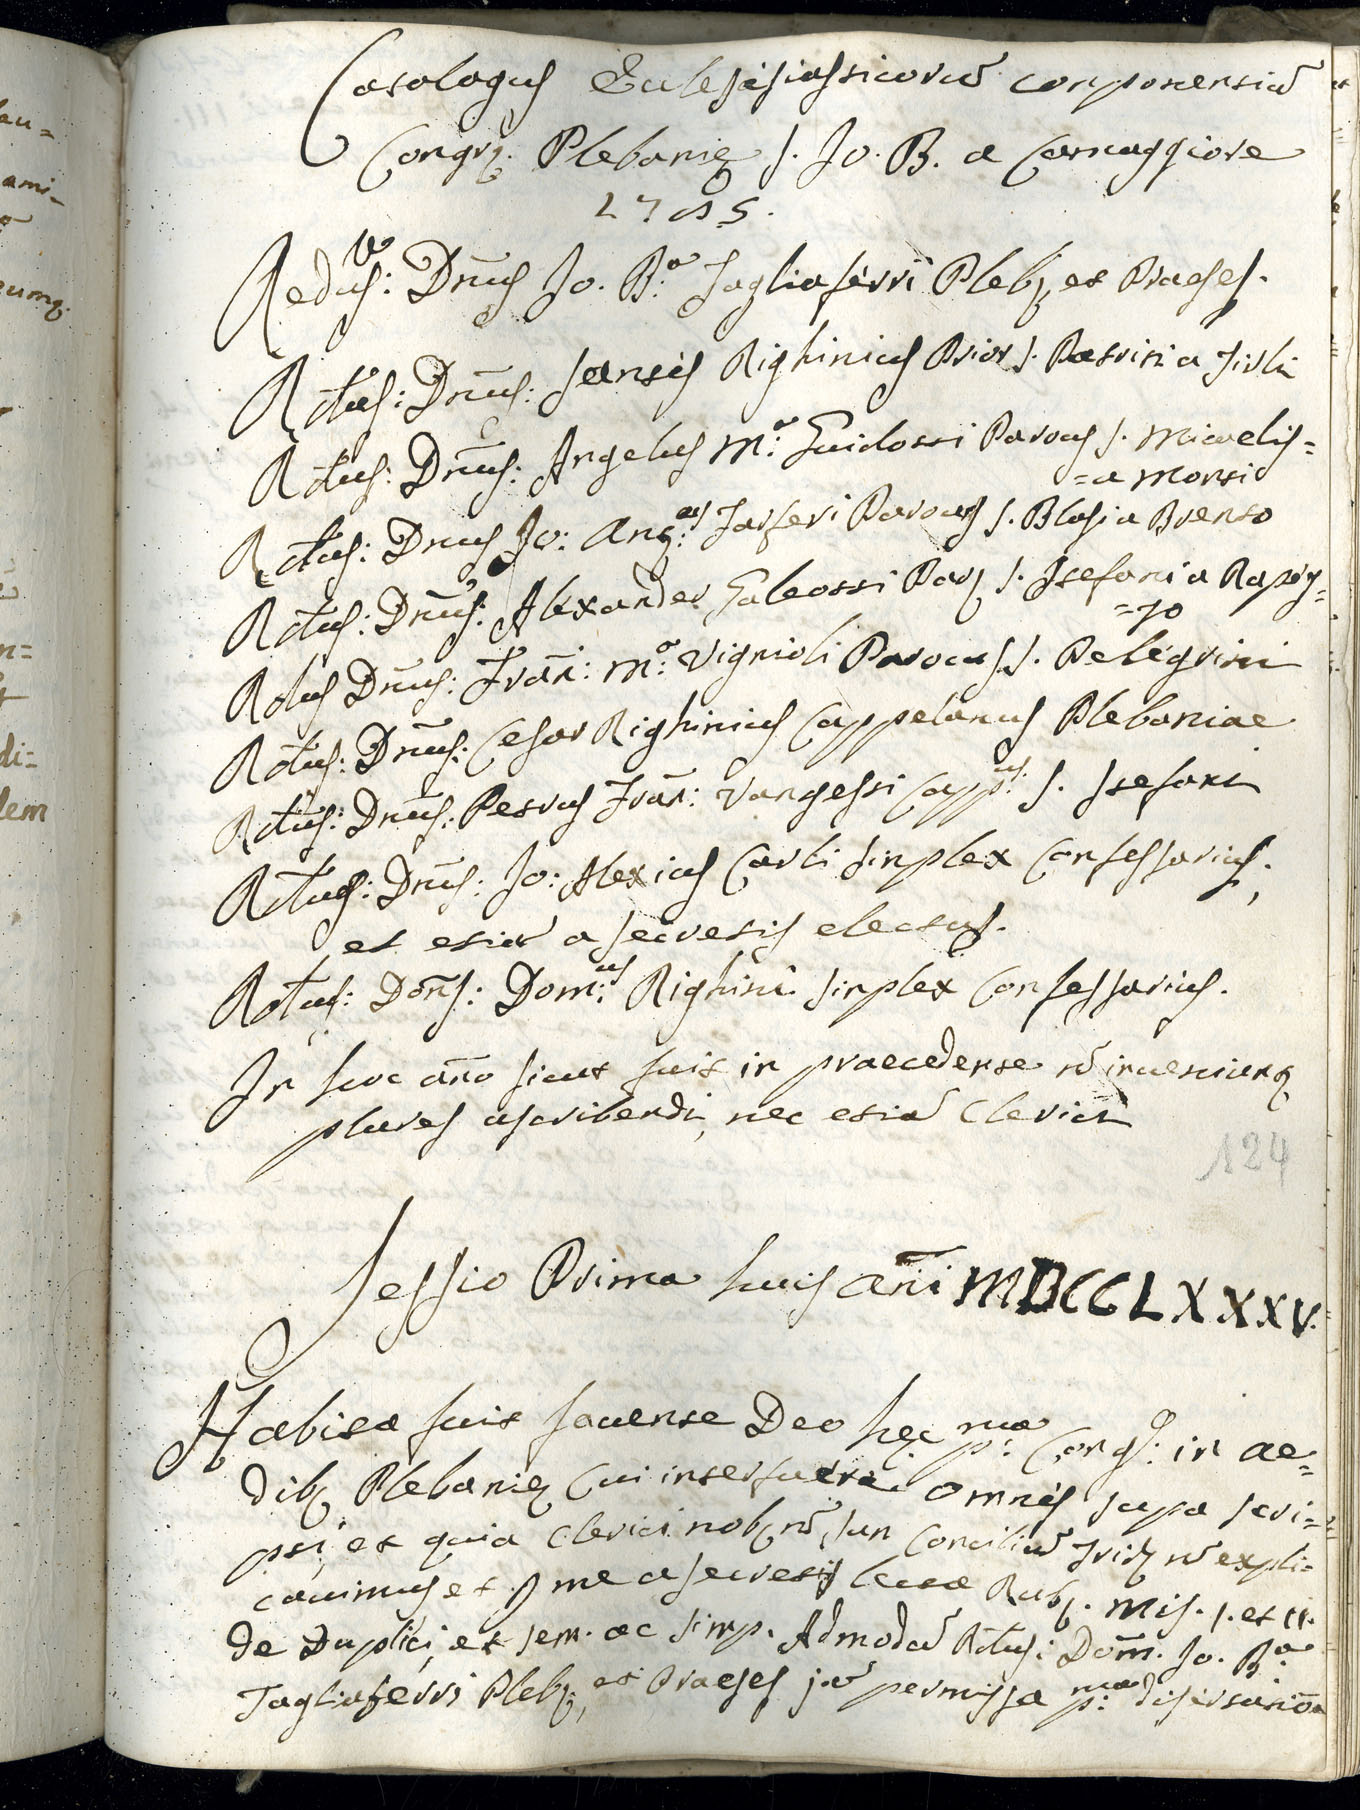 Catalogus Eclesisiasticorū componentiū
Congrę. Plebanię S. Jo. B. a Camaggiore
1785.
Redus: Dnus Jo. Bª Tagliaferri Plebs et Praeses.
Rdus: Dnus: Santes Righinius Prior S. Petrini a Tirli
Rdus: Dnus: Angelus Mª: Guidotti Parocus S. Micaelis=
=a Monti
Rdus: Dnus Jo: Ant:us Parocus S. Blasi a Brento
Rdus: Dnus: Alexander Galeotti S. Stefani a Rapez=
=zo
Rdus Dnus: Fran: Mª: Vignioli Parocus S. Pelegrini
Rdus: Dnus: Cesar Righinius Cappelanus Plebaniae
Rdus: Dnus: Petrus Fran: Vangessi Capp:us S. Stefani
Rdus: Dnus: Jo: Alexius Carli simplex Confessarius;
et etiā a secretis electus.
Rdus: Dons: Dom:us Righini simplex Confessarius.
In hoc año sicut fuit in praecedente nō inveniunt
plures ascribendi, nec etiā Clerici
124
Sessio Prima huius ani MDCCLXXXV.
Habita fuit favente Deo hęc pma: Congs: in ae=
dibs Plebanię Cui interfuere omnes supa scri=
pti, et quia Clerici nobs nō sun Conciliū Trids nō expli=
cavimus et p me a secretis lecta Rubs. Mis. I. et II.
de Duplici, et sem. ac simp. Admodū Rdus: Dom. Jo. Bª
Tagliaferri Plebs, et Praeses jā permissa pma: